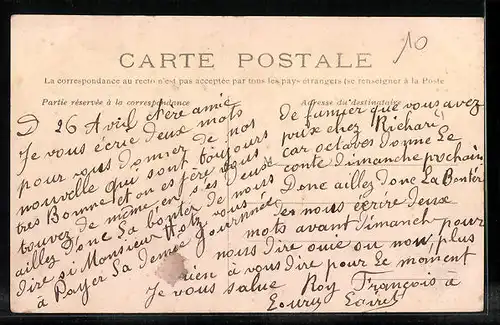 10
CARTE POSTALE
La correspondance au recto n'est pas acceptée par tous les pays étrangers (se renseigner à la Poste
Partie réservée à la correspondance
Adresse du destinataire
D 26 Avril chère amie
Je vous écrie deux mots
pour vous donner de nos
nouvelle qui sont toujours
tres Bonne et on es père vous
touvez de même, je des deux
aillez donc La bonter de nous
dire si Monsieur vous
à Payer La demie Journnée
de fumier que vous avez
prix chez Richard
car octaves donne Le
conte dimanche prochain
Donc aillez donc La Bonter
de nous écrire deux
mots avant dimanch pour
nous dire ouie ou non, plus
rien à vous dire pour Le moment
Je vous salue Roy François à